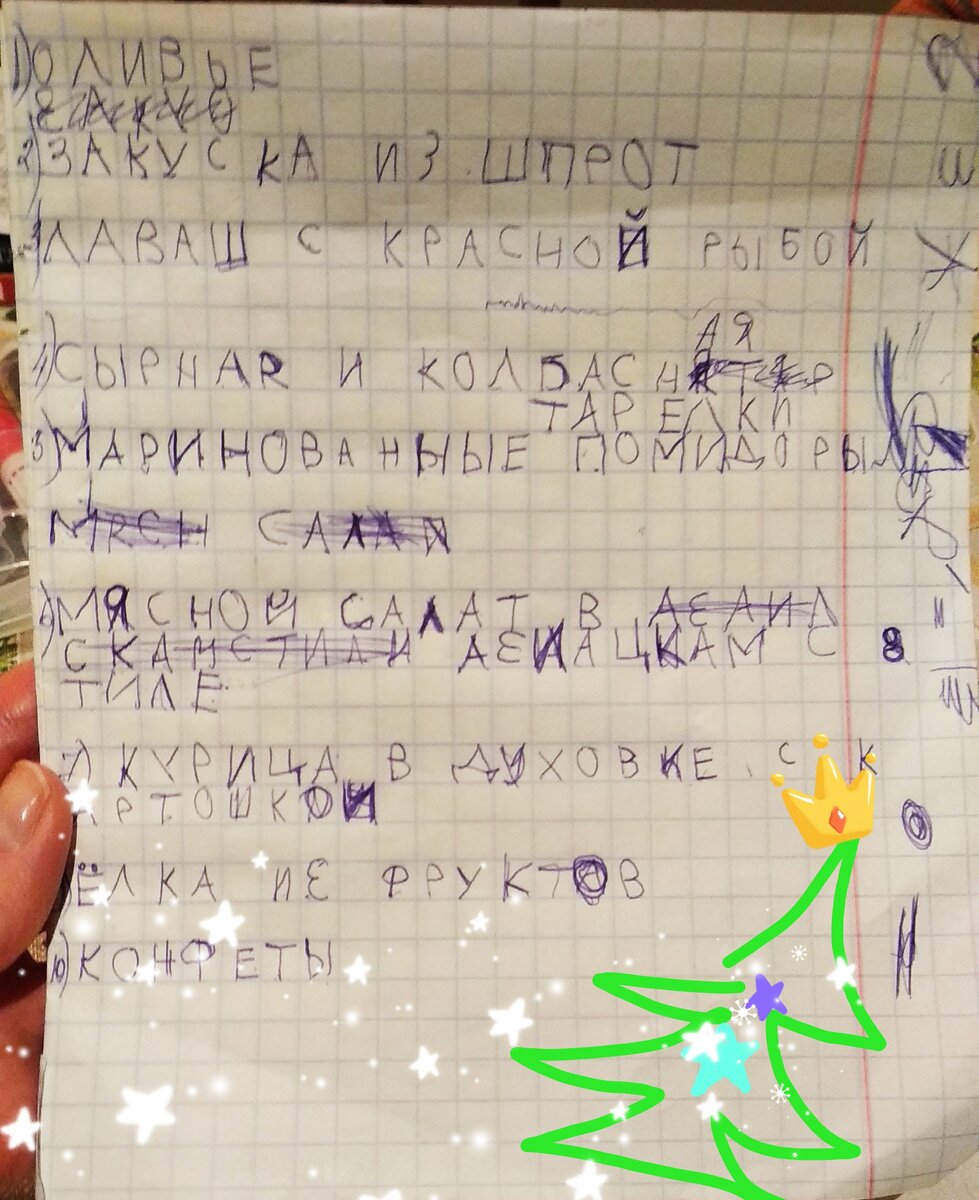 1) ОЛИВЬЕ
2) ЗАКУСКА ИЗ ШПРОТ
3) ЛАВАШ С КРАСНОЙ РЫБОЙ
АЯ
4) СЫРНАЯ И КОЛБАСН
ТАРЕЛКИ
5) МАРИНОВАННЫЕ ПОМИДОРЫ
6) МЯСНОЙ САЛАТ В
ДЕИАЦКАМ С
ТИЛЕ
7) КУРИЦА В ДУХОВКЕ С К
АРТОШКОЙ
ЁЛКА ИЕ ФРУКТОВ
10) КОНФЕТЫ